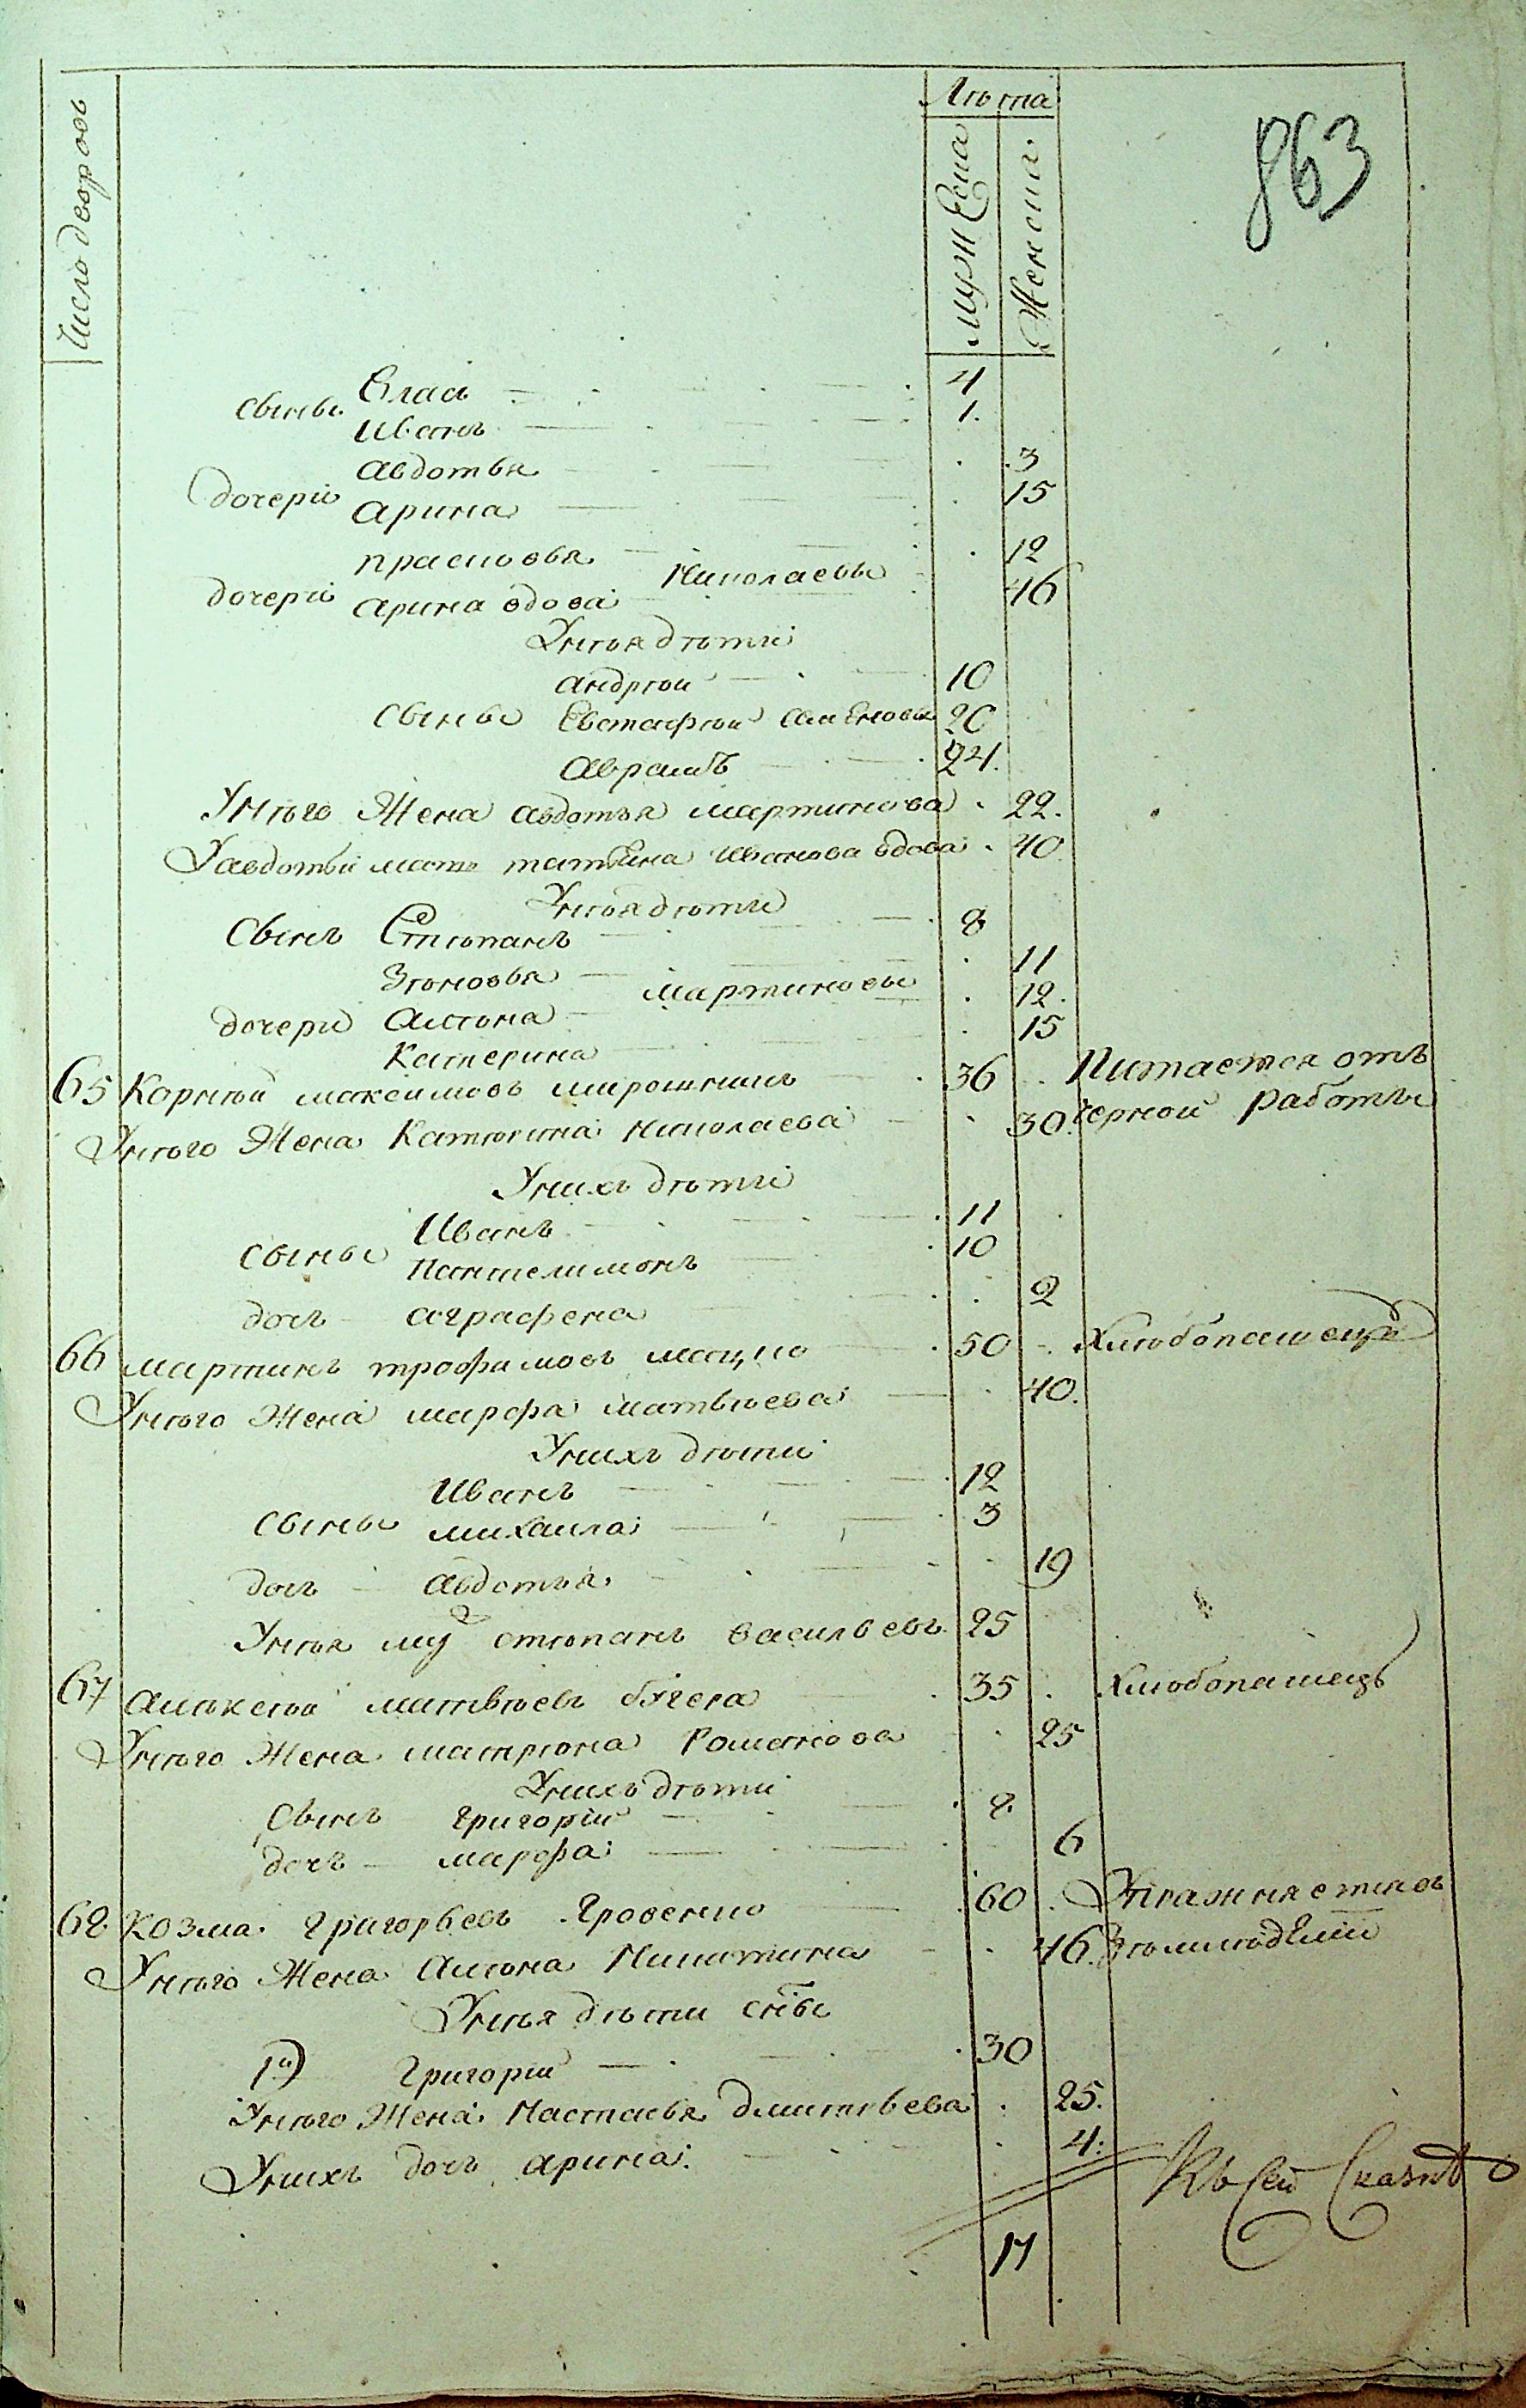 863
Число дворовъ
Лѣта
мужеска
Женска
Сыны Власъ 4
Иванъ 1.
дочери Авдотья 3
Арина 15
Прасковья Николаевы 12
дочери Арина вдова 46
У нея дѣти
Андрѣй 10
Сыны Евстафѣй 20
Аврамъ 24.
У него Жена Авдотья Мартинова 22.
У Авдотьи мать Татьяна Иванова вдова 40
У нея дѣти
Сынъ Стѣпанъ 8
Зѣновья Мартиновы 11
дочери Алѣна 12.
Катерина 15
65 Корнѣй Максимовъ Мирошникъ 36 Питается отъ
У него Жена Катѣрина Николаева 30. черной работы
У нихъ дѣти
Сыны Иванъ 11
Пантелимонъ 10
дочь Аграфена 2
66 Мартинъ Трофимовъ Мацко 50 Хлѣбопашецъ
У него Жена Марфа Матвѣева 40.
У нихъ дѣти
Иванъ 12
Сыны Михаила 3
дочь Авдотья 19
У нея му Стѣпанъ Васильевъ 25
67 Алѣксѣй Матвѣевъ 35 Хлѣбопашецъ
У него Жена Матрѣна Романова 25
У нихъ дѣти
Сынъ Григорій 8.
дочь Марфа 6
68 Козма Григорьевъ Яровенко 60 Упражняется въ
У него Жена Алѣна Никитина 46. Зѣмлѣдѣліи
У нея дѣти снъы
1й) Григорій 30
У него Жена Настасья Дмитрѣева 25.
У нихъ дочь Арина 4:
Къ сей Сказкѣ
17